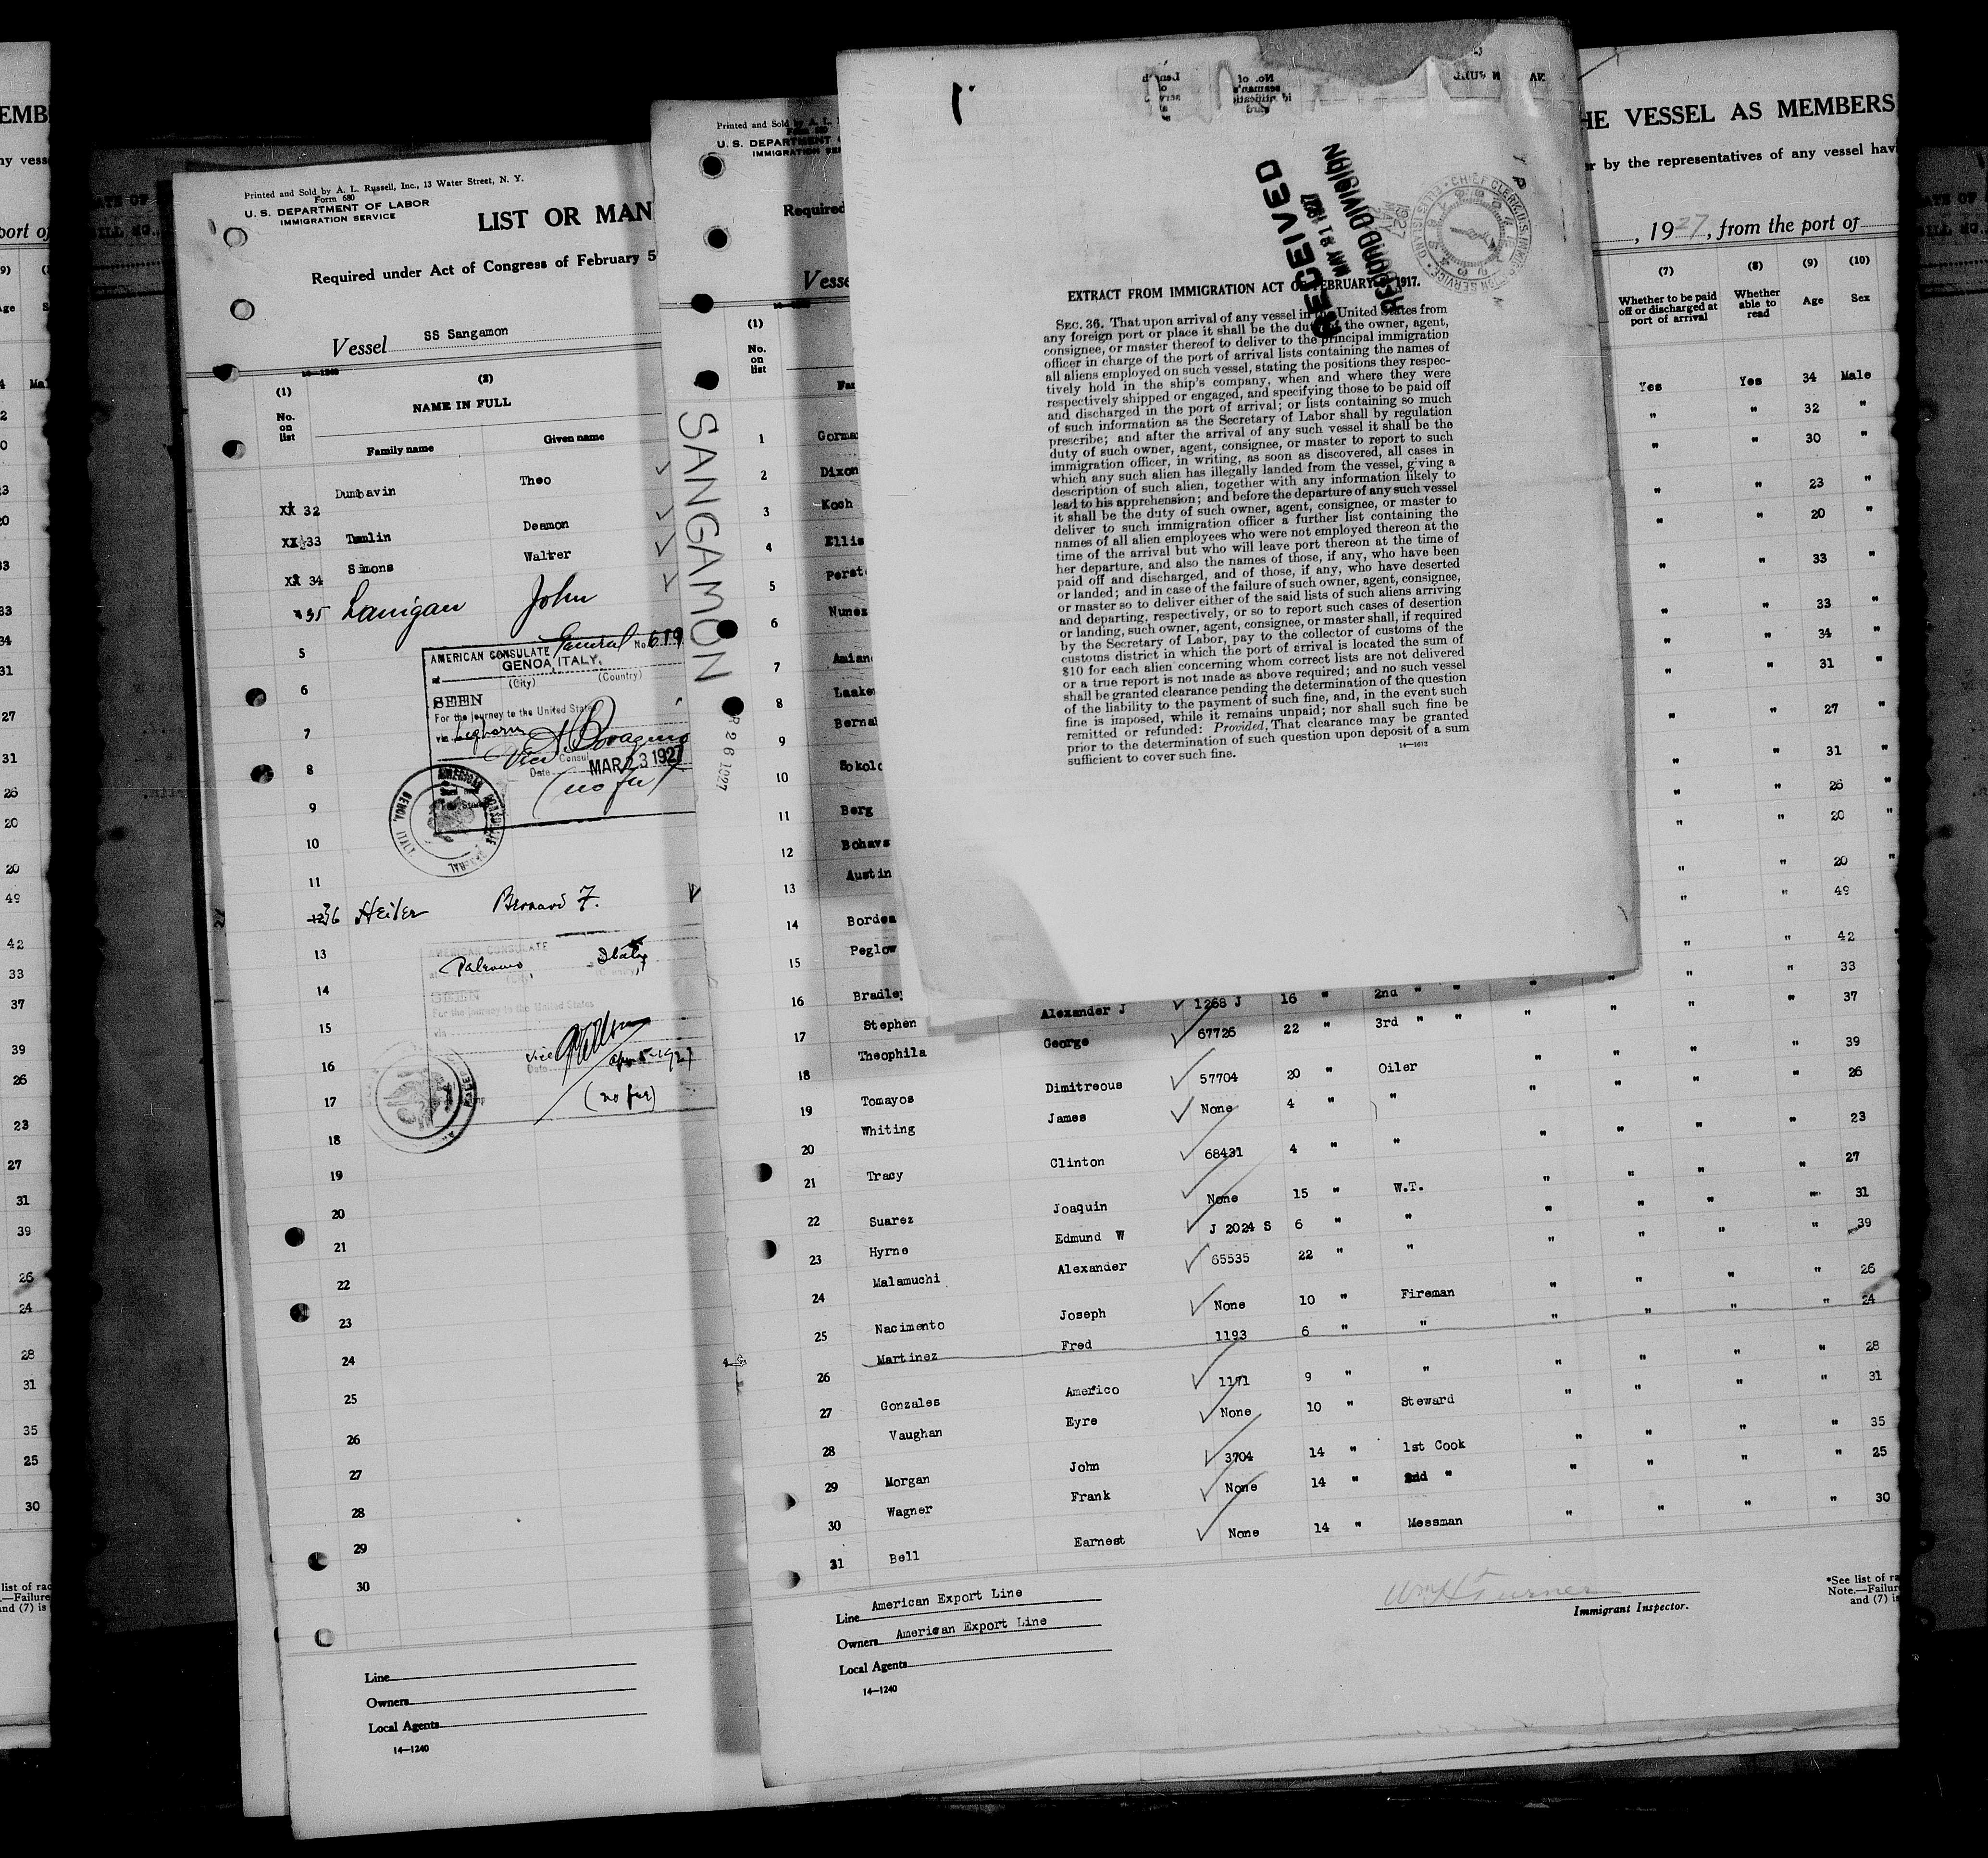 EMB
ny vess
port of
Printed and Sold by A. L. Russell, Inc., 13 Water Street, N. Y.
Form 680
U. S. DEPARTMENT OF LABOR
IMMIGRATION SERVICE
LIST OR MAN
Required under Act of Congress of February 5
Vessel SS Sangamon
14—1240
(1) (2)
No. on list
NAME IN FULL
Family name Given name
XX 32 Dumbavin Theo
XX 33 Tumlin Deamon
XX 34 Simons Walter
35 Lanigan John
5
AMERICAN CONSULATE General No. 619
GENOA, ITALY.
(City) (Country)
6
SEEN
For the journey to the United States
7
via Leghorn
Vice Consul
8
Date MAR 23 1927
(no fee)
AMERICAN CONSULATE GENERAL
GENOA, ITALY
9
10
11
36 Heiler Bernard F.
13
AMERICAN CONSULATE
Palermo, Italy
(City)
14
SEEN
For the journey to the United States
15
via
16
Vice
Date Apr 5-1927
17
(no fee)
18
19
20
21
22
23
24
25
26
27
28
29
30
Line
Owners
Local Agents
14—1240
Printed and Sold by A. L.
Form 680
U. S. DEPARTMENT
IMMIGRATION SER
Required
Vesse
SANGAMON
(1)
No. on list
Fa
1 Gorma
2 Dixon
3 Koch
4 Ellis
5 Perst
6 Nunez
7 Amian
8 Laake
9 Bernal
10 Sokolo
11 Berg
12 Bohavs
13 Austin
14 Bordea
15 Peglow
16 Bradley Alexander J 1268 J 16 " 2nd " "
17 Stephen George 67726 22 " 3rd " "
18 Theophila Dimitreous 57704 20 " Oiler
19 Tomayos James None 4 " "
20 Whiting Clinton 68431 4 " "
21 Tracy Joaquin None 15 " W.T.
22 Suarez Edmund W J 2024 S 6 " "
23 Hyrne Alexander 65535 22 " "
24 Malamuchi Joseph None 10 " Fireman
25 Nacimento Fred 1193 6 " "
26 Martinez Americo 1171 9 " "
27 Gonzales Eyre None 10 " Steward
28 Vaughan John 3704 14 " 1st Cook
29 Morgan Frank None 14 " 2nd "
30 Wagner Earnest None 14 " Messman
31 Bell
Line American Export Line
Owners American Export Line
Local Agents
14—1240
Wm H Turner
Immigrant Inspector.
*See list of ra
Note.—Failur
and (7) is
RECEIVED
MAY 31 1927
RECORD DIVISION
CHIEF CLERK, U.S. IMMIGRATION SERVICE • ELLIS ISLAND, N.Y.
MAY
1927
EXTRACT FROM IMMIGRATION ACT OF FEBRUARY 5, 1917.
SEC. 36. That upon arrival of any vessel in the United States from
any foreign port or place it shall be the duty of the owner, agent,
consignee, or master thereof to deliver to the principal immigration
officer in charge of the port of arrival lists containing the names of
all aliens employed on such vessel, stating the positions they respec-
tively hold in the ship's company, when and where they were
respectively shipped or engaged, and specifying those to be paid off
and discharged in the port of arrival; or lists containing so much
of such information as the Secretary of Labor shall by regulation
prescribe; and after the arrival of any such vessel it shall be the
duty of such owner, agent, consignee, or master to report to such
immigration officer, in writing, as soon as discovered, all cases in
which any such alien has illegally landed from the vessel, giving a
description of such alien, together with any information likely to
lead to his apprehension; and before the departure of any such vessel
it shall be the duty of such owner, agent, consignee, or master to
deliver to such immigration officer a further list containing the
names of all alien employees who were not employed thereon at the
time of the arrival but who will leave port thereon at the time of
her departure, and also the names of those, if any, who have been
paid off and discharged, and of those, if any, who have deserted
or landed; and in case of the failure of such owner, agent, consignee,
or master so to deliver either of the said lists of such aliens arriving
and departing, respectively, or so to report such cases of desertion
or landing, such owner, agent, consignee, or master shall, if required
by the Secretary of Labor, pay to the collector of customs of the
customs district in which the port of arrival is located the sum of
$10 for each alien concerning whom correct lists are not delivered
or a true report is not made as above required; and no such vessel
shall be granted clearance pending the determination of the question
of the liability to the payment of such fine, and, in the event such
fine is imposed, while it remains unpaid; nor shall such fine be
remitted or refunded: Provided, That clearance may be granted
prior to the determination of such question upon deposit of a sum
sufficient to cover such fine.
14—1612
HE VESSEL AS MEMBERS
er by the representatives of any vessel havi
, 1927, from the port of
(7) (8) (9) (10)
Whether to be paid off or discharged at port of arrival
Whether able to read
Age
Sex
Yes Yes 34 Male
" " 32 "
" " 30 "
" " 23 "
" " 20 "
" " 33 "
" " 33 "
" " 34 "
" " 31 "
" " 27 "
" " 31 "
" " 26
" " 20 "
" " 20 "
" " 49
" " 42
" " 33
" " 37
" " 39
" " 26
" " 23
" " 27
" " 31
" " 39
" " 26
" " 24
" " 28
" " 31
" " 35
" " 25
" " 30